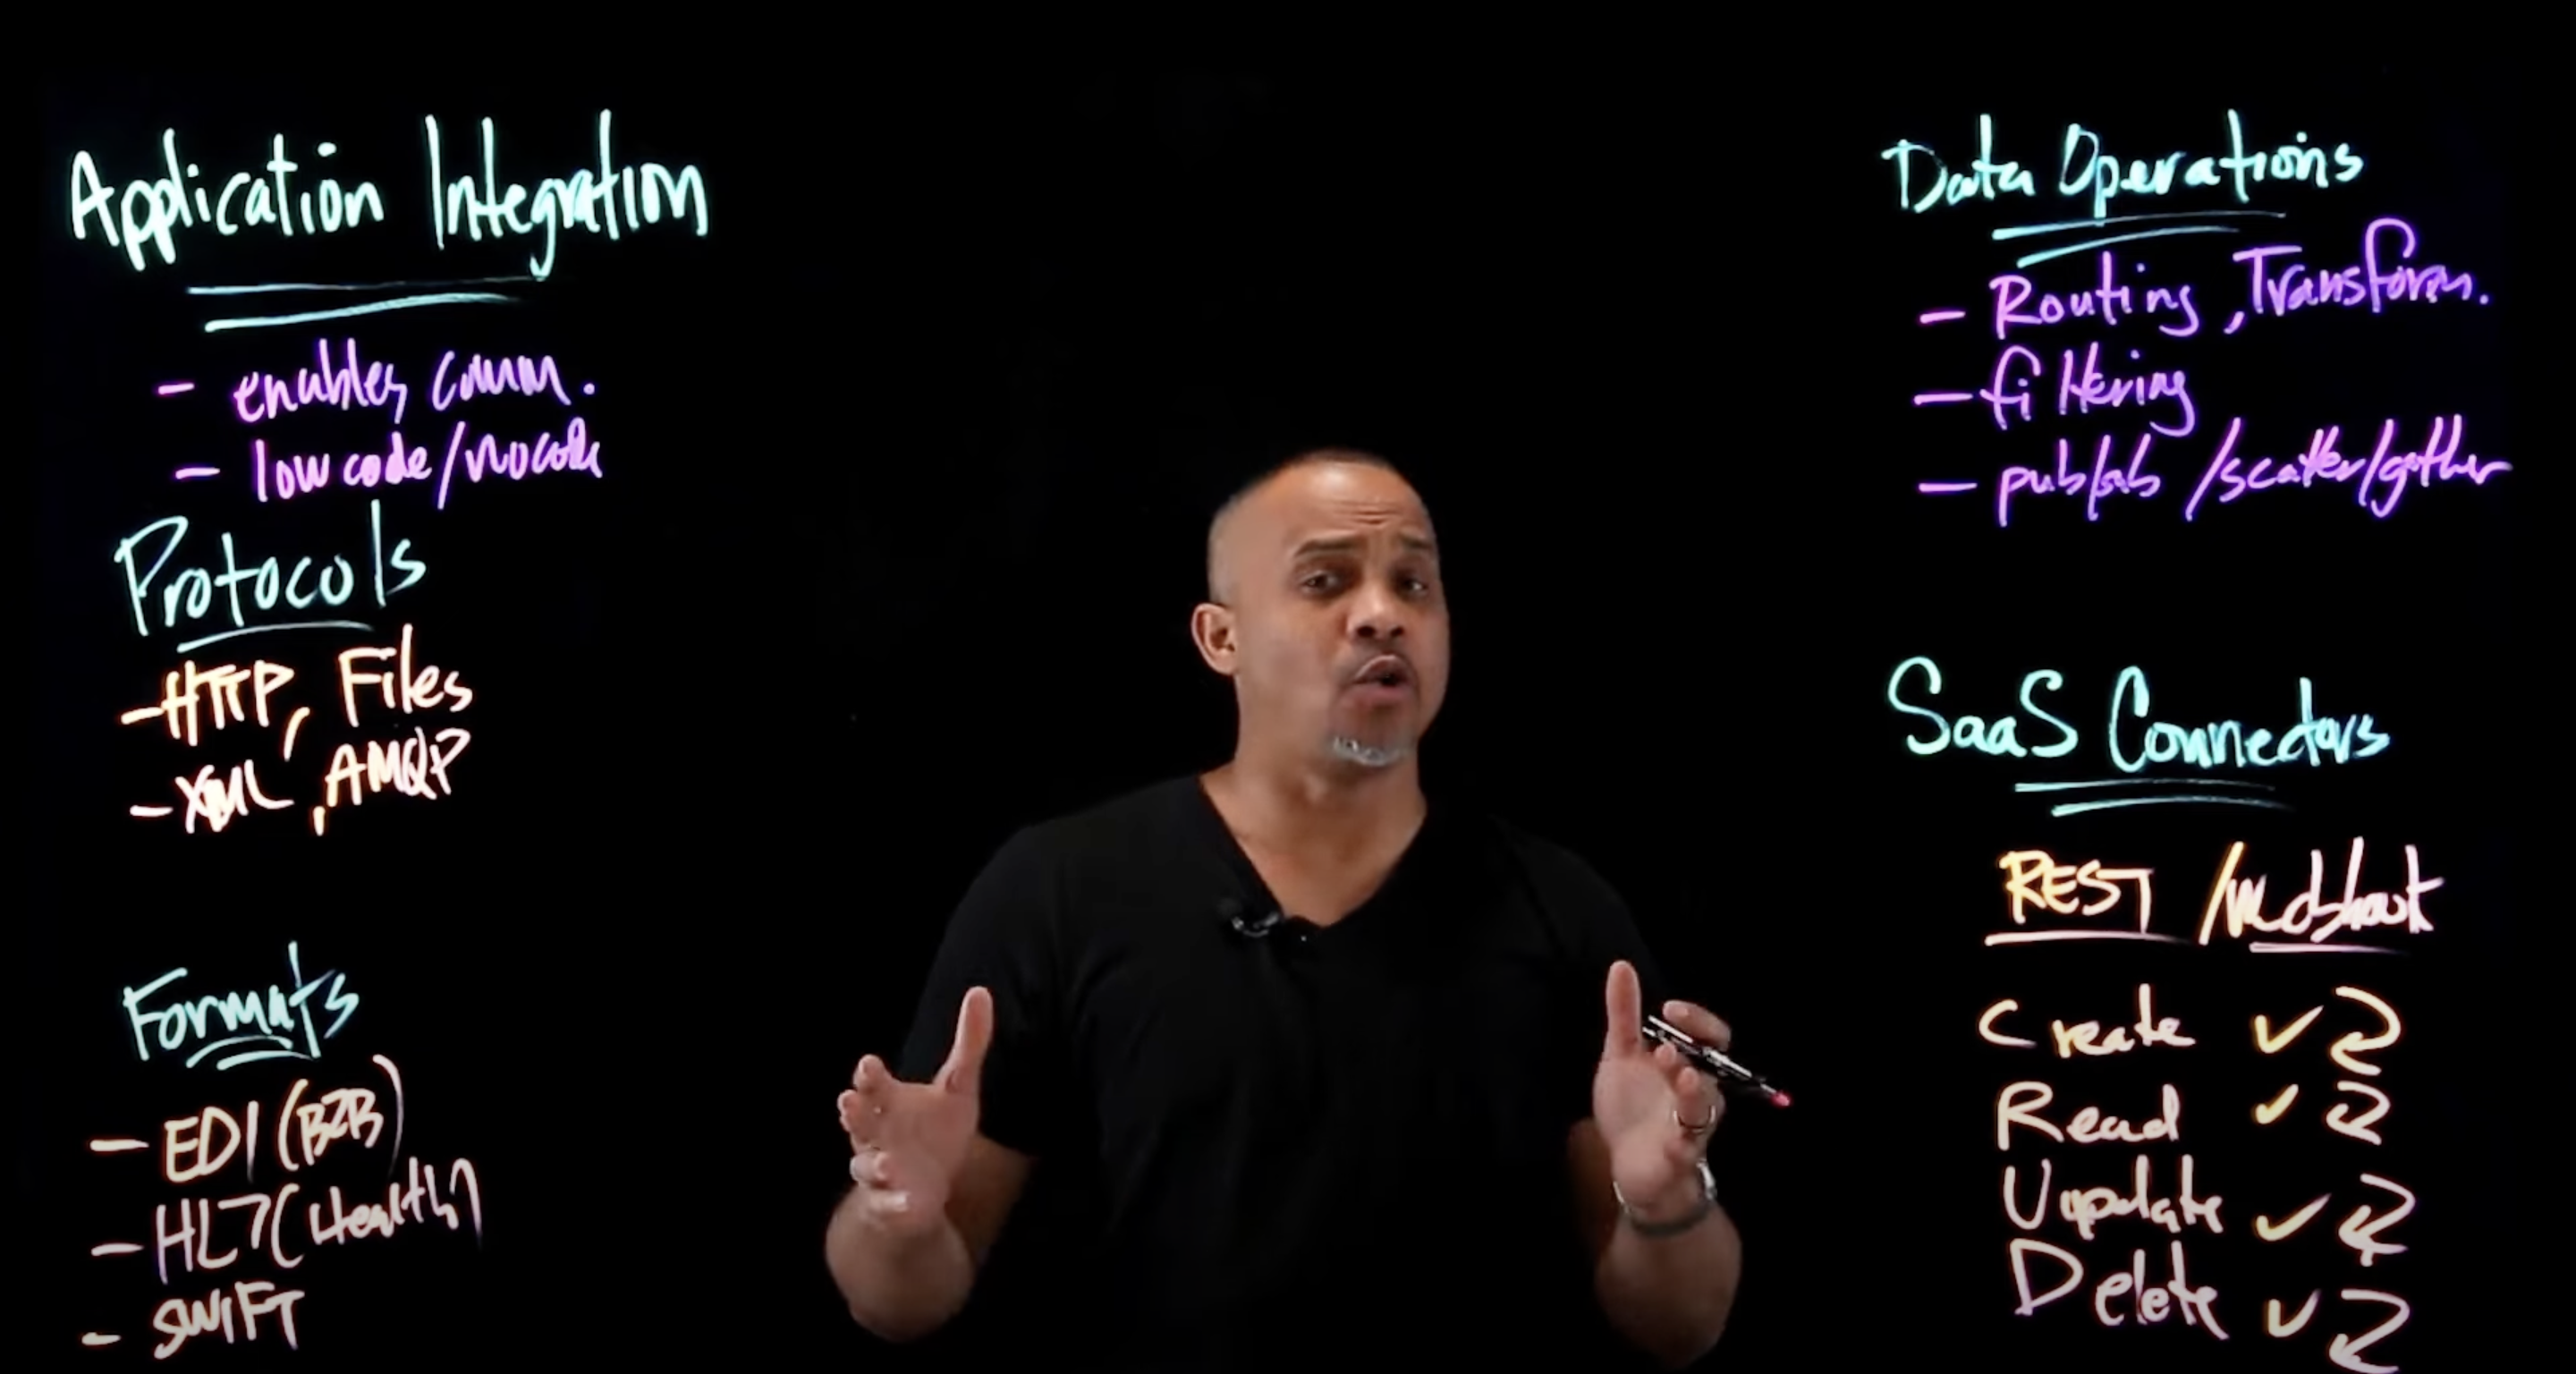 Application Integration
- enables comm.
- low code/nocode
Protocols
- HTTP, Files
- XML, AMQP
Formats
- EDI (B2B)
- HL7 (Health)
- SWIFT
Data Operations
- Routing, Transform.
- filtering
- pub/sub /scatter/gather
SaaS Connectors
REST /
Create ✓
Read ✓
Update ✓
Delete ✓